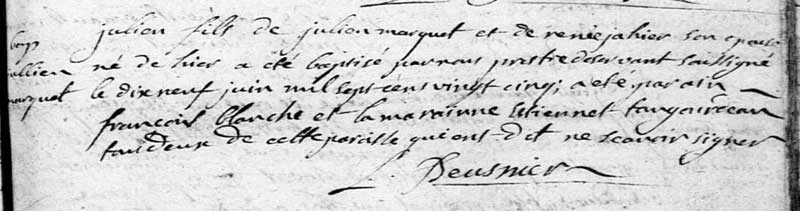 bap
jullien
marquet
julien fils de julien marquet et de renée jahier son epouse
né de hier a été baptisé par nous prestre deservant soussigné
le dix neuf juin mil sept cens vingt cinq; a eté parain
francois blanche et la marainne Estiennet
tous deux de cette paroisse qui ont dit ne scavoir signer